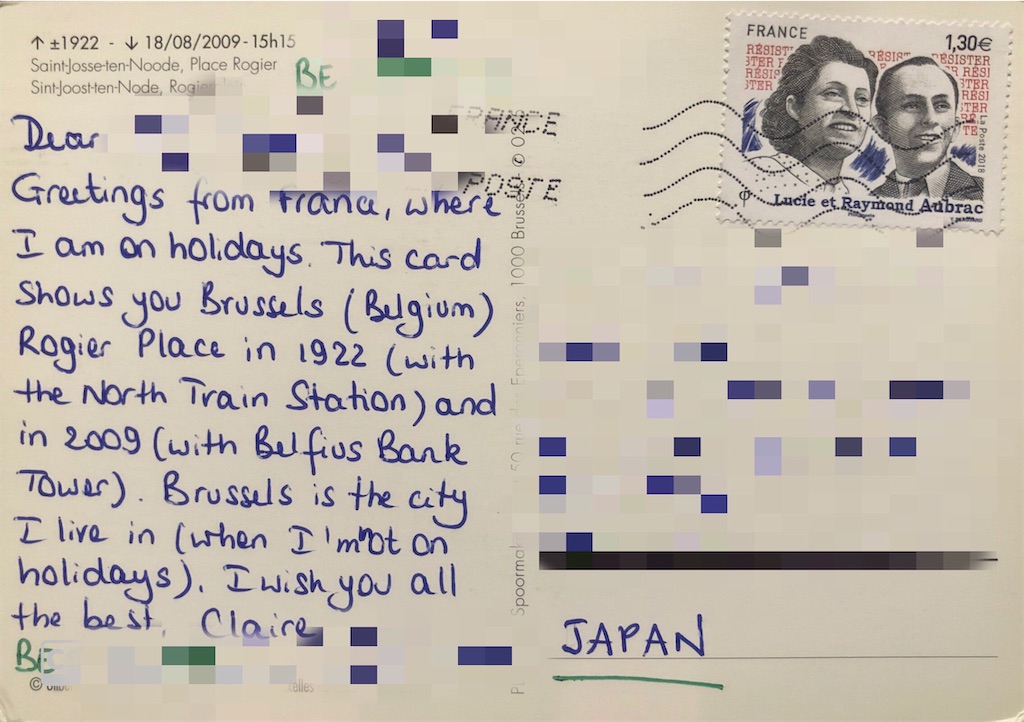 ↑ ±1922 - ↓ 18/08/2009 - 15h15
Saint-Josse-ten-Noode, Place Rogier
Sint-Joost-ten-Node, Rogier
BE
Dear
Greetings from France, where
I am on holidays. This card
shows you Brussels (Belgium)
Rogier Place in 1922 (with
the North Train Station) and
in 2009 (with Belfius Bank
Tower). Brussels is the city
I live in (when I'm not on
holidays). I wish you all
the best, Claire
BE
©
FRANCE
POSTE
1000 Brussel
FRANCE
1,30€
RÉSISTER
La Poste 2018
Lucie et Raymond Aubrac
JAPAN